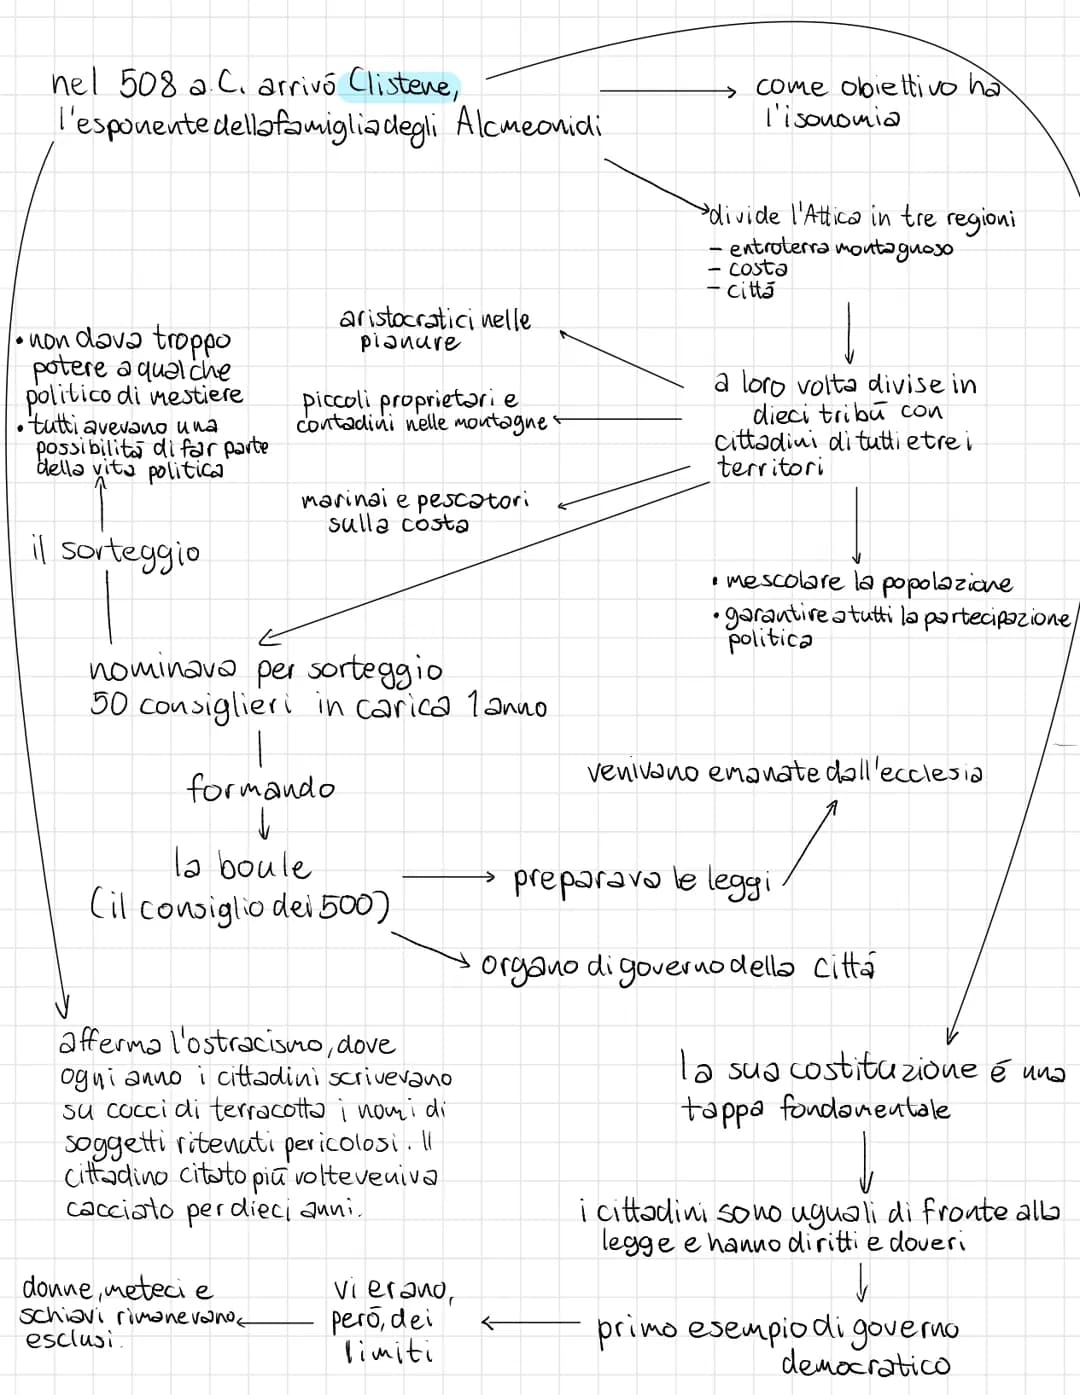 nel 508 a.C. arrivó Clistene,
l'esponente della famiglia degli Alcmeonidi
come obiettivo ha
l'isonomia
divide l'Attica in tre regioni
- entroterra montagnoso
- costa
- cittá
a loro volta divise in
dieci tribú con
cittadini di tutti e tre i
territori
aristocratici nelle
pianure
piccoli proprietari e
contadini nelle montagne
marinai e pescatori
sulla costa
• mescolare la popolazione
• garantire a tutti la partecipazione
politica
• non dava troppo
potere a qualche
politico di mestiere
• tutti avevano una
possibilitá di far parte
della vita politica
il sorteggio
nominava per sorteggio
50 consiglieri in carica 1 anno
formando
la boule
(il consiglio dei 500)
preparava le leggi
venivano emanate dall'ecclesia
organo di governo della cittá
afferma l'ostracismo, dove
ogni anno i cittadini scrivevano
su cocci di terracotta i nomi di
soggetti ritenuti pericolosi. Il
cittadino citato piú volte veniva
cacciato per dieci anni.
la sua costituzione é una
tappa fondamentale
i cittadini sono uguali di fronte alla
legge e hanno diritti e doveri
primo esempio di governo
democratico
vi erano,
peró, dei
limiti
donne, meteci e
schiavi rimanevano
esclusi.